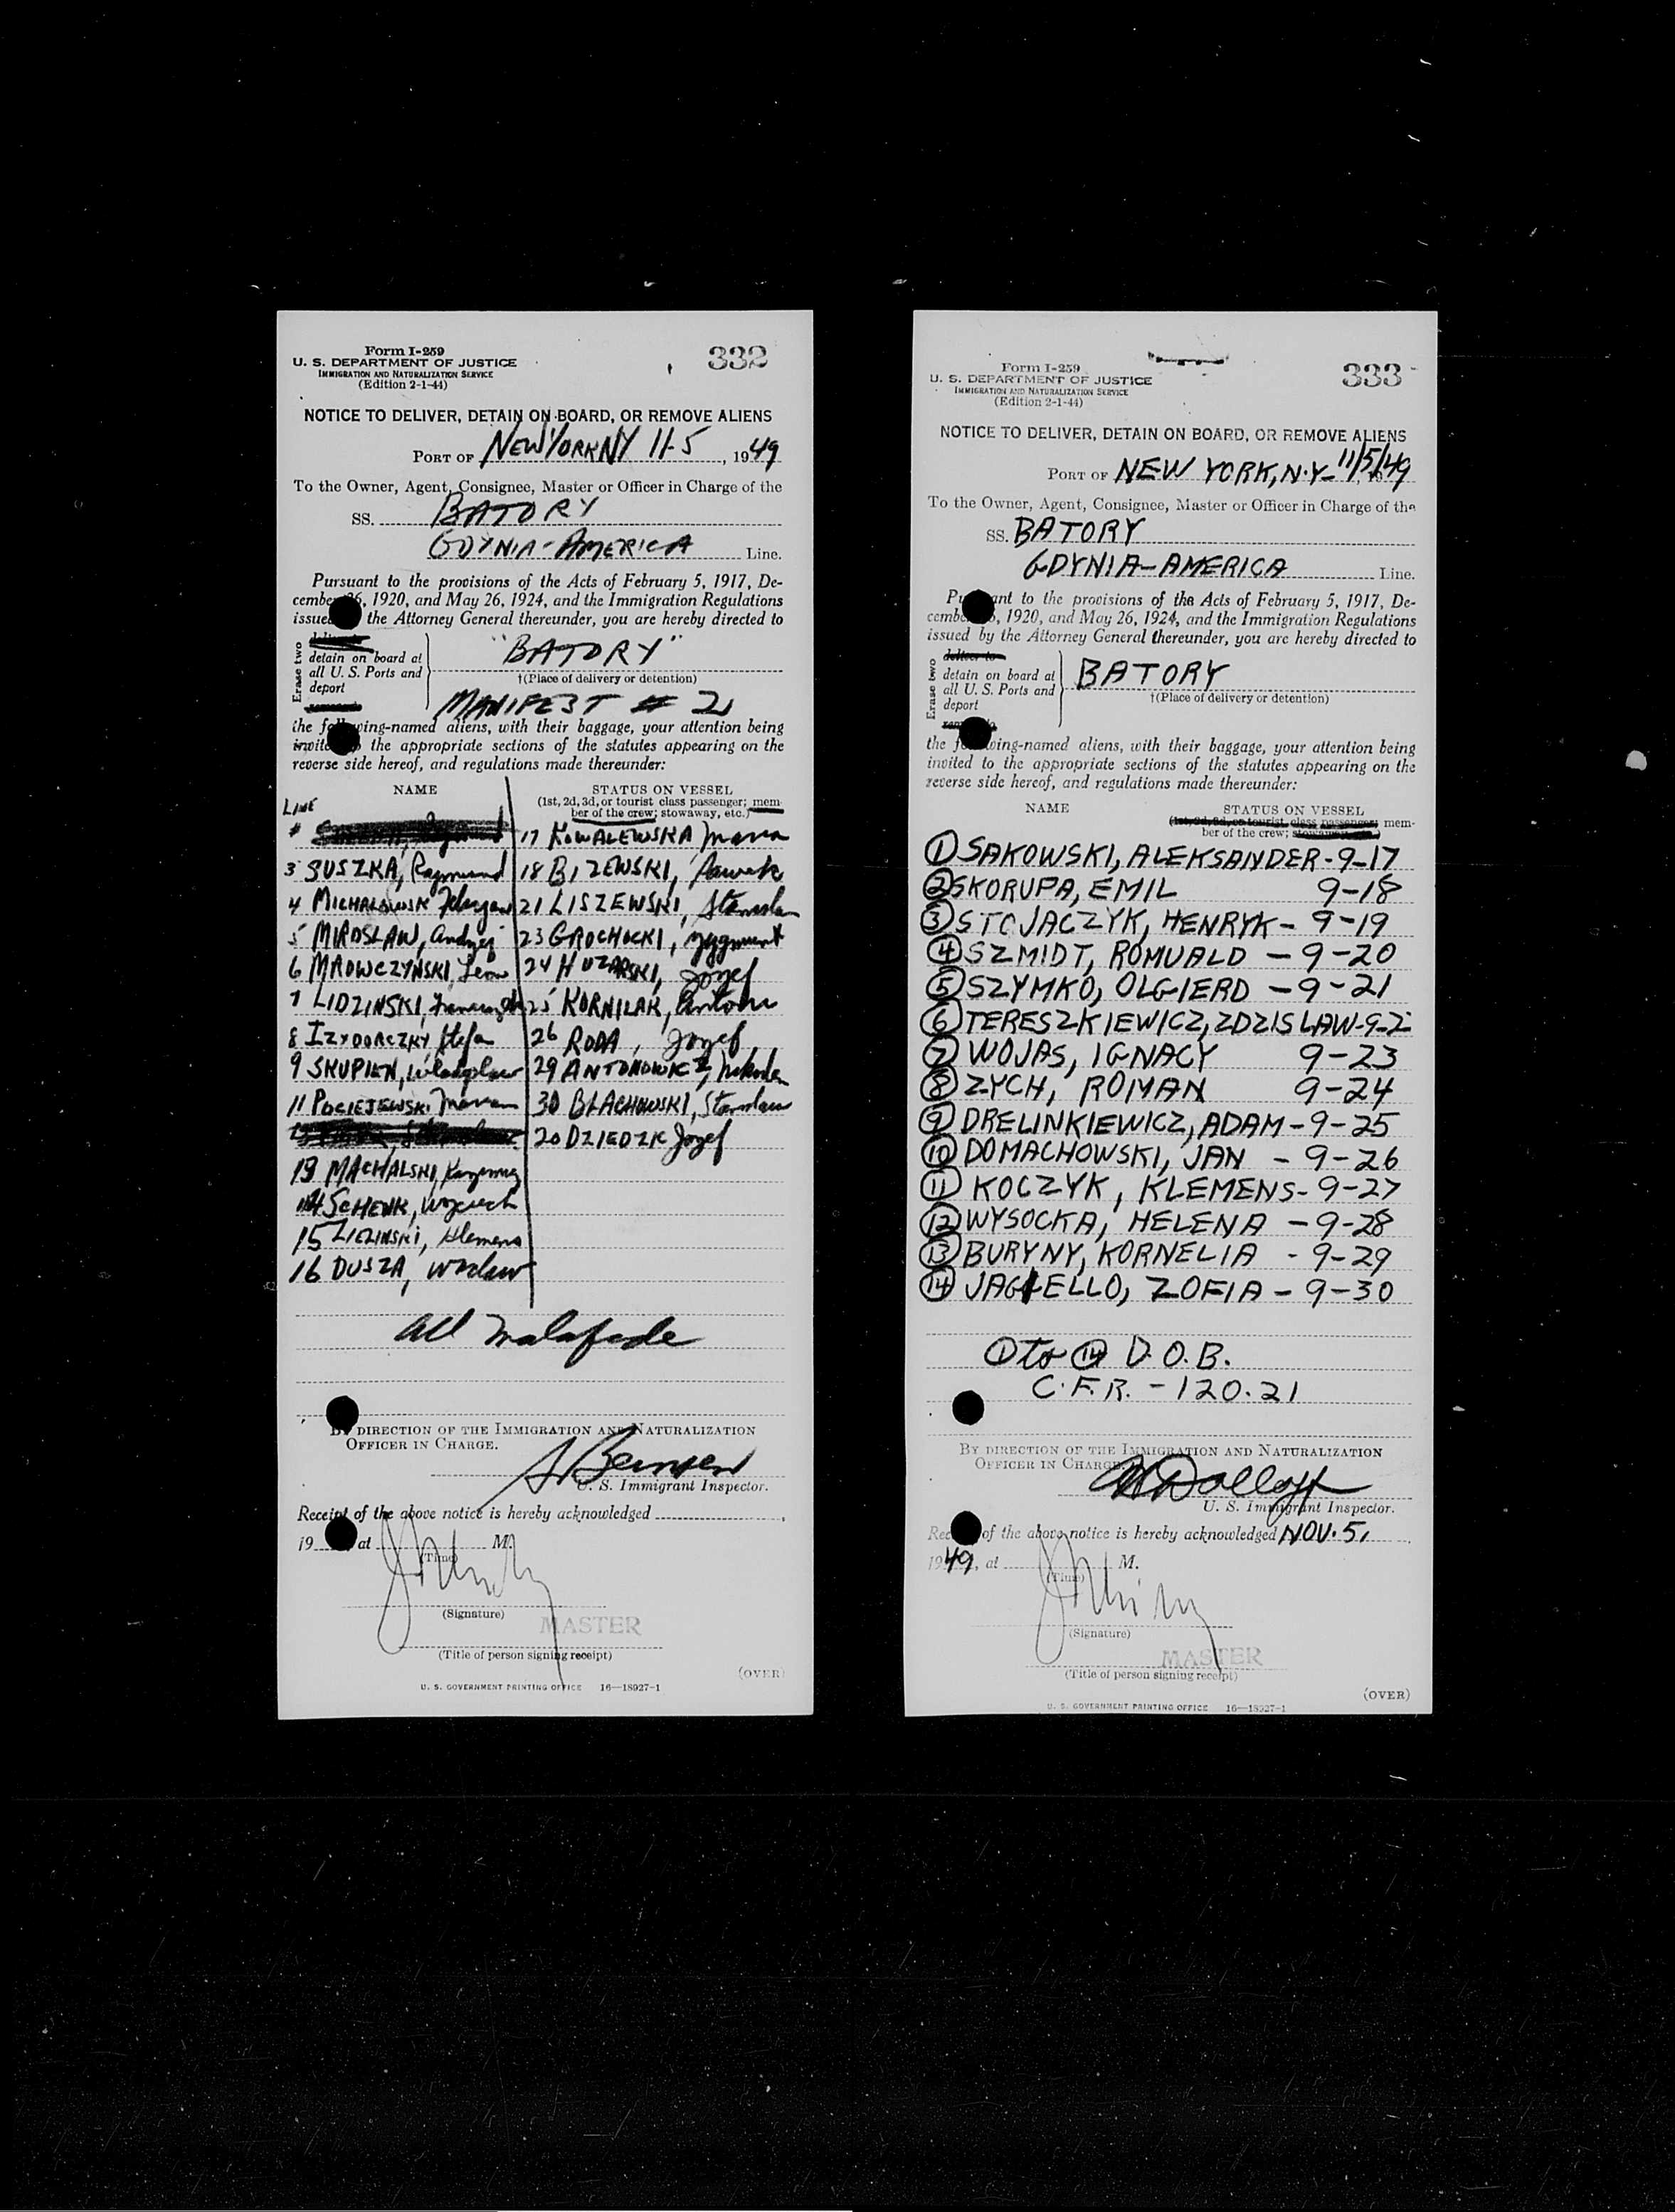 Form I-259
U. S. DEPARTMENT OF JUSTICE
IMMIGRATION AND NATURALIZATION SERVICE
(Edition 2-1-44)
332
NOTICE TO DELIVER, DETAIN ON BOARD, OR REMOVE ALIENS
PORT OF NEW YORK NY 11-5, 1949
To the Owner, Agent, Consignee, Master or Officer in Charge of the
SS. BATORY
GDYNIA-AMERICA Line.
Pursuant to the provisions of the Acts of February 5, 1917, De-
cember 26, 1920, and May 26, 1924, and the Immigration Regulations
issued the Attorney General thereunder, you are hereby directed to
Erase two
deliver to
detain on board at
all U. S. Ports and
deport
"BATORY"
†(Place of delivery or detention)
MANIFEST # 2
the following-named aliens, with their baggage, your attention being
invited the appropriate sections of the statutes appearing on the
reverse side hereof, and regulations made thereunder:
NAME
STATUS ON VESSEL
(1st, 2d, 3d, or tourist class passenger; mem-
ber of the crew; stowaway, etc.)
LINE
#
17 KOWALEWSKA, Maria
3 SUSZKA, Raymund
18 BIZEWSKI,
4 MICHALOWSK
21 LISZEWSKI, Stanislaw
5 MIROSLAW, Andrzej
23 GROCHOCKI, Zygmunt
6 MADWCZYNSKI, Leon
24 HUZARSKI, Jozef
7 LIDZINSKI,
25 KORNILAK, Antoni
8 IZYDORCZKY, Stefan
26 RODA, Jozef
9 SKUPIEN, Wladyslaw
29 ANTONOWICZ,
11 POCIEJEWSKI Marian
30 BLACHOWSKI, Stanislaw
20 DZIEDZIC Jozef
13 MACHALSKI, Kazimierz
14 SCHENK, Wojciech
15 ZIELINSKI, Klemens
16 DUSZA, Waclaw
All malafide
BY DIRECTION OF THE IMMIGRATION AND NATURALIZATION
OFFICER IN CHARGE.
U. S. Immigrant Inspector.
Receipt of the above notice is hereby acknowledged
19 at M.
(Time)
(Signature)
MASTER
(Title of person signing receipt)
(OVER)
U. S. GOVERNMENT PRINTING OFFICE 16—18927-1
Form I-259
U. S. DEPARTMENT OF JUSTICE
IMMIGRATION AND NATURALIZATION SERVICE
(Edition 2-1-44)
333
NOTICE TO DELIVER, DETAIN ON BOARD, OR REMOVE ALIENS
PORT OF NEW YORK, N.Y- 11/5/49
To the Owner, Agent, Consignee, Master or Officer in Charge of the
SS. BATORY
GDYNIA-AMERICA Line.
Pursuant to the provisions of the Acts of February 5, 1917, De-
cember 26, 1920, and May 26, 1924, and the Immigration Regulations
issued by the Attorney General thereunder, you are hereby directed to
Erase two
deliver to
detain on board at
all U. S. Ports and
deport
BATORY
†(Place of delivery or detention)
the following-named aliens, with their baggage, your attention being
invited to the appropriate sections of the statutes appearing on the
reverse side hereof, and regulations made thereunder:
NAME
STATUS ON VESSEL
(1st, 2d, 3d, or tourist class passenger; mem-
ber of the crew; stowaway, etc.)
1 SAKOWSKI, ALEKSANDER-9-17
2 SKORUPA, EMIL 9-18
3 STOJACZYK, HENRYK- 9-19
4 SZMIDT, ROMUALD - 9-20
5 SZYMKO, OLGIERD - 9-21
6 TERESZKIEWICZ, ZDZISLAW-9-2
7 WOJAS, IGNACY 9-23
8 ZYCH, ROMAN 9-24
9 DRELINKIEWICZ, ADAM-9-25
10 DOMACHOWSKI, JAN - 9-26
11 KOCZYK, KLEMENS- 9-27
12 WYSOCKA, HELENA - 9-28
13 BURYNY, KORNELIA - 9-29
14 JAGIELLO, ZOFIA - 9-30
1 to 14 D.O.B.
C.F.R. - 120.21
BY DIRECTION OF THE IMMIGRATION AND NATURALIZATION
OFFICER IN CHARGE.
U. S. Immigrant Inspector.
of the above notice is hereby acknowledged NOV. 5,
1949, at M.
(Time)
(Signature)
MASTER
(Title of person signing receipt)
(OVER)
U. S. GOVERNMENT PRINTING OFFICE 16—18927-1